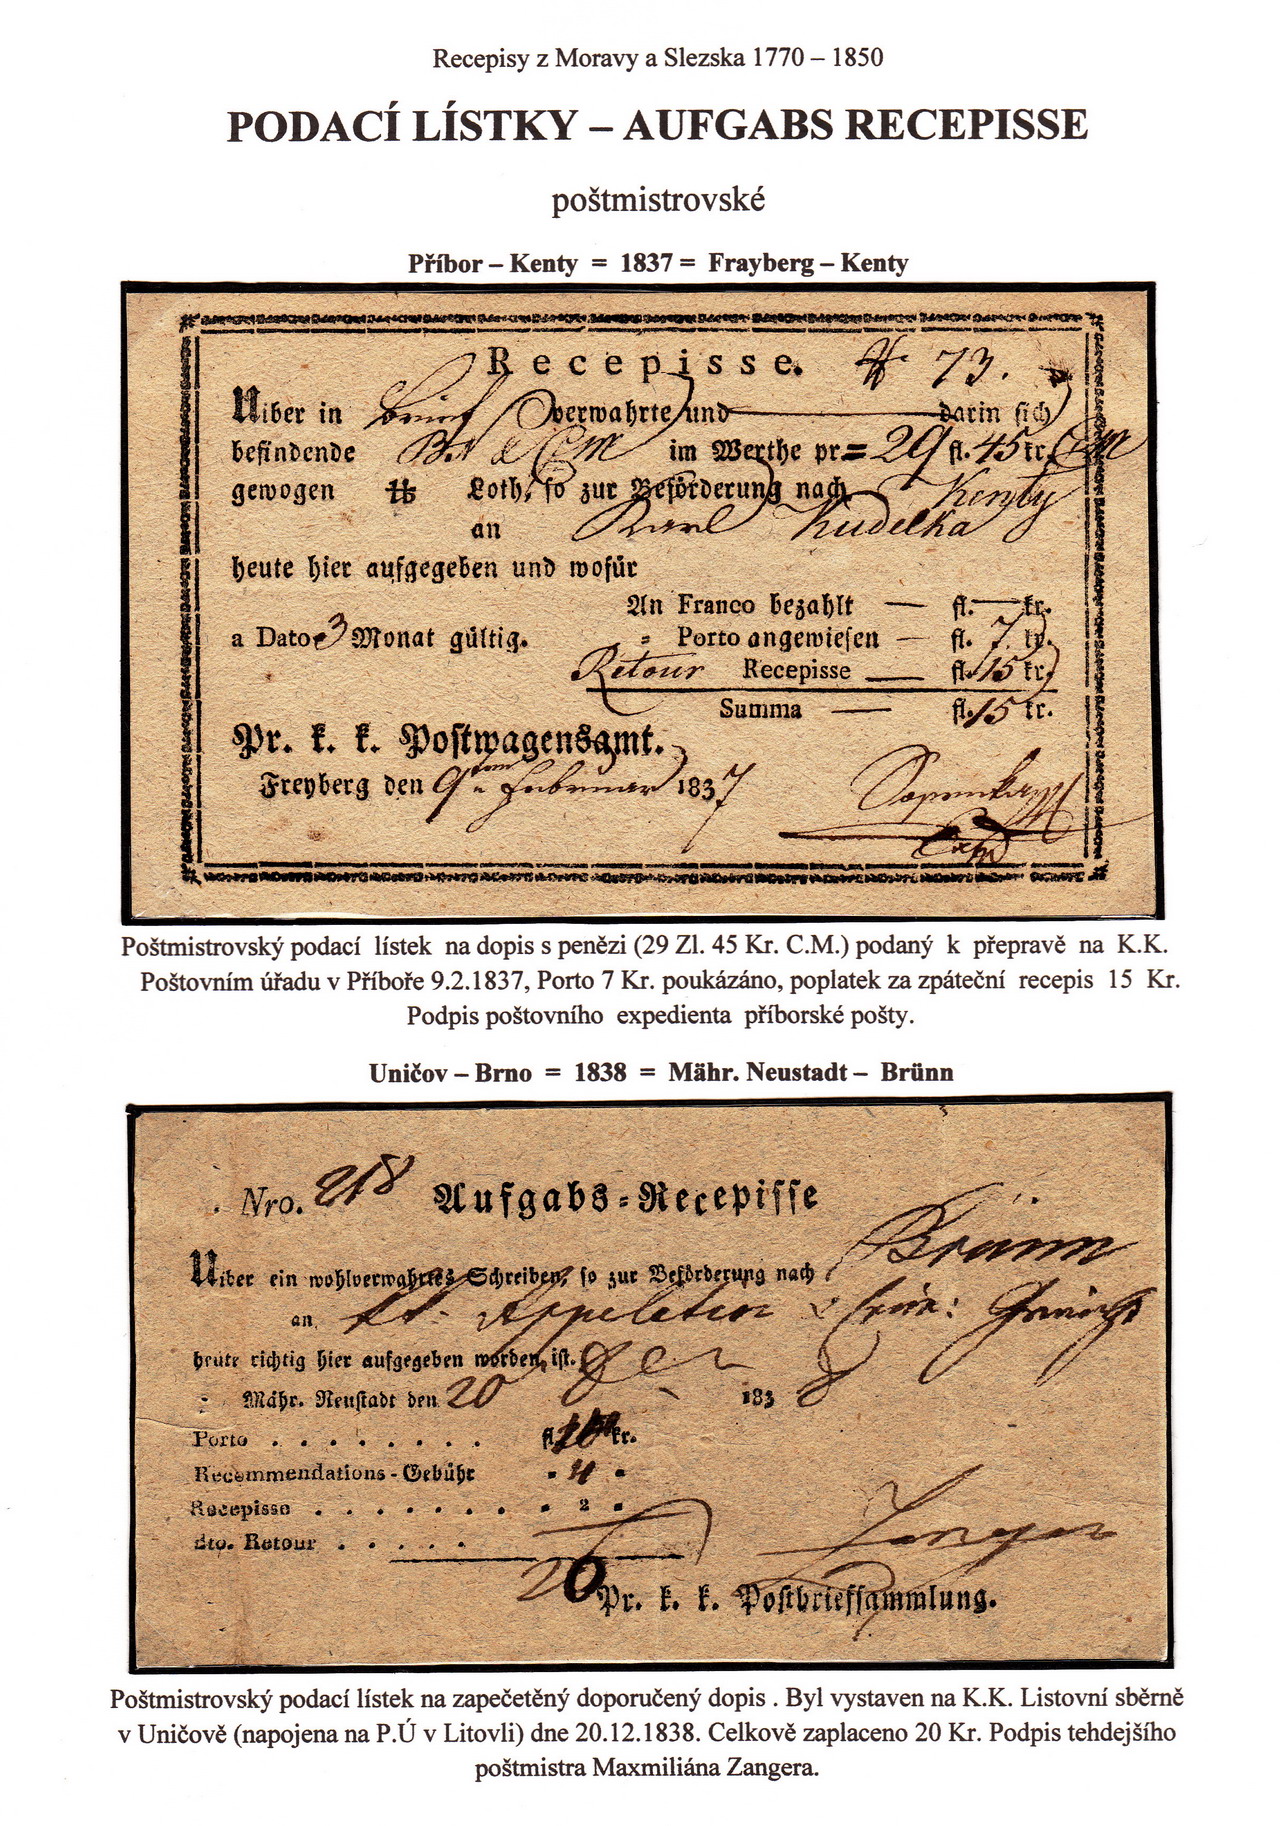 Recepisy z Moravy a Slezska 1770 – 1850
PODACÍ LÍSTKY – AUFGABS RECEPISSE
poštmistrovské
Příbor – Kenty = 1837 = Frayberg – Kenty
Recepisse. # 73.
Uiber in Brief verwahrte und darin sich
befindende im Werthe pr= 29 fl. 45 kr. CM
gewogen Loth, so zur Beförderung nach Kenty
an Karl Kudelka
heute hier aufgegeben und wofür
An Franco bezahlt — fl. — kr.
a Dato 3 Monat gültig. = Porto angewiesen — fl. 7 kr.
Retour Recepisse — fl. 15 kr.
Summa — fl. 15 kr.
Pr. k. k. Postwagensamt.
Freyberg den 9ten Februar 1837
Poštmistrovský podací lístek na dopis s penězi (29 Zl. 45 Kr. C.M.) podaný k přepravě na K.K.
Poštovním úřadu v Příboře 9.2.1837, Porto 7 Kr. poukázáno, poplatek za zpáteční recepis 15 Kr.
Podpis poštovního expedienta příborské pošty.
Uničov – Brno = 1838 = Mähr. Neustadt – Brünn
Nro. 218 Aufgabs-Recepisse
Uiber ein wohlverwahrtes Schreiben, so zur Beförderung nach Brünn
an k.k. Appelation
heute richtig hier aufgegeben worden, ist.
Mähr. Neustadt den 20 Dez 1838
Porto . . . . . . . . fl. kr.
Recommendations-Gebühr " 4 "
Recepisse . . . . . . . . " 2 "
dto. Retour . . . . .
20
Zanger
Pr. k. k. Postbriefsammlung.
Poštmistrovský podací lístek na zapečetěný doporučený dopis . Byl vystaven na K.K. Listovní sběrně
v Uničově (napojena na P.Ú v Litovli) dne 20.12.1838. Celkově zaplaceno 20 Kr. Podpis tehdejšího
poštmistra Maxmiliána Zangera.